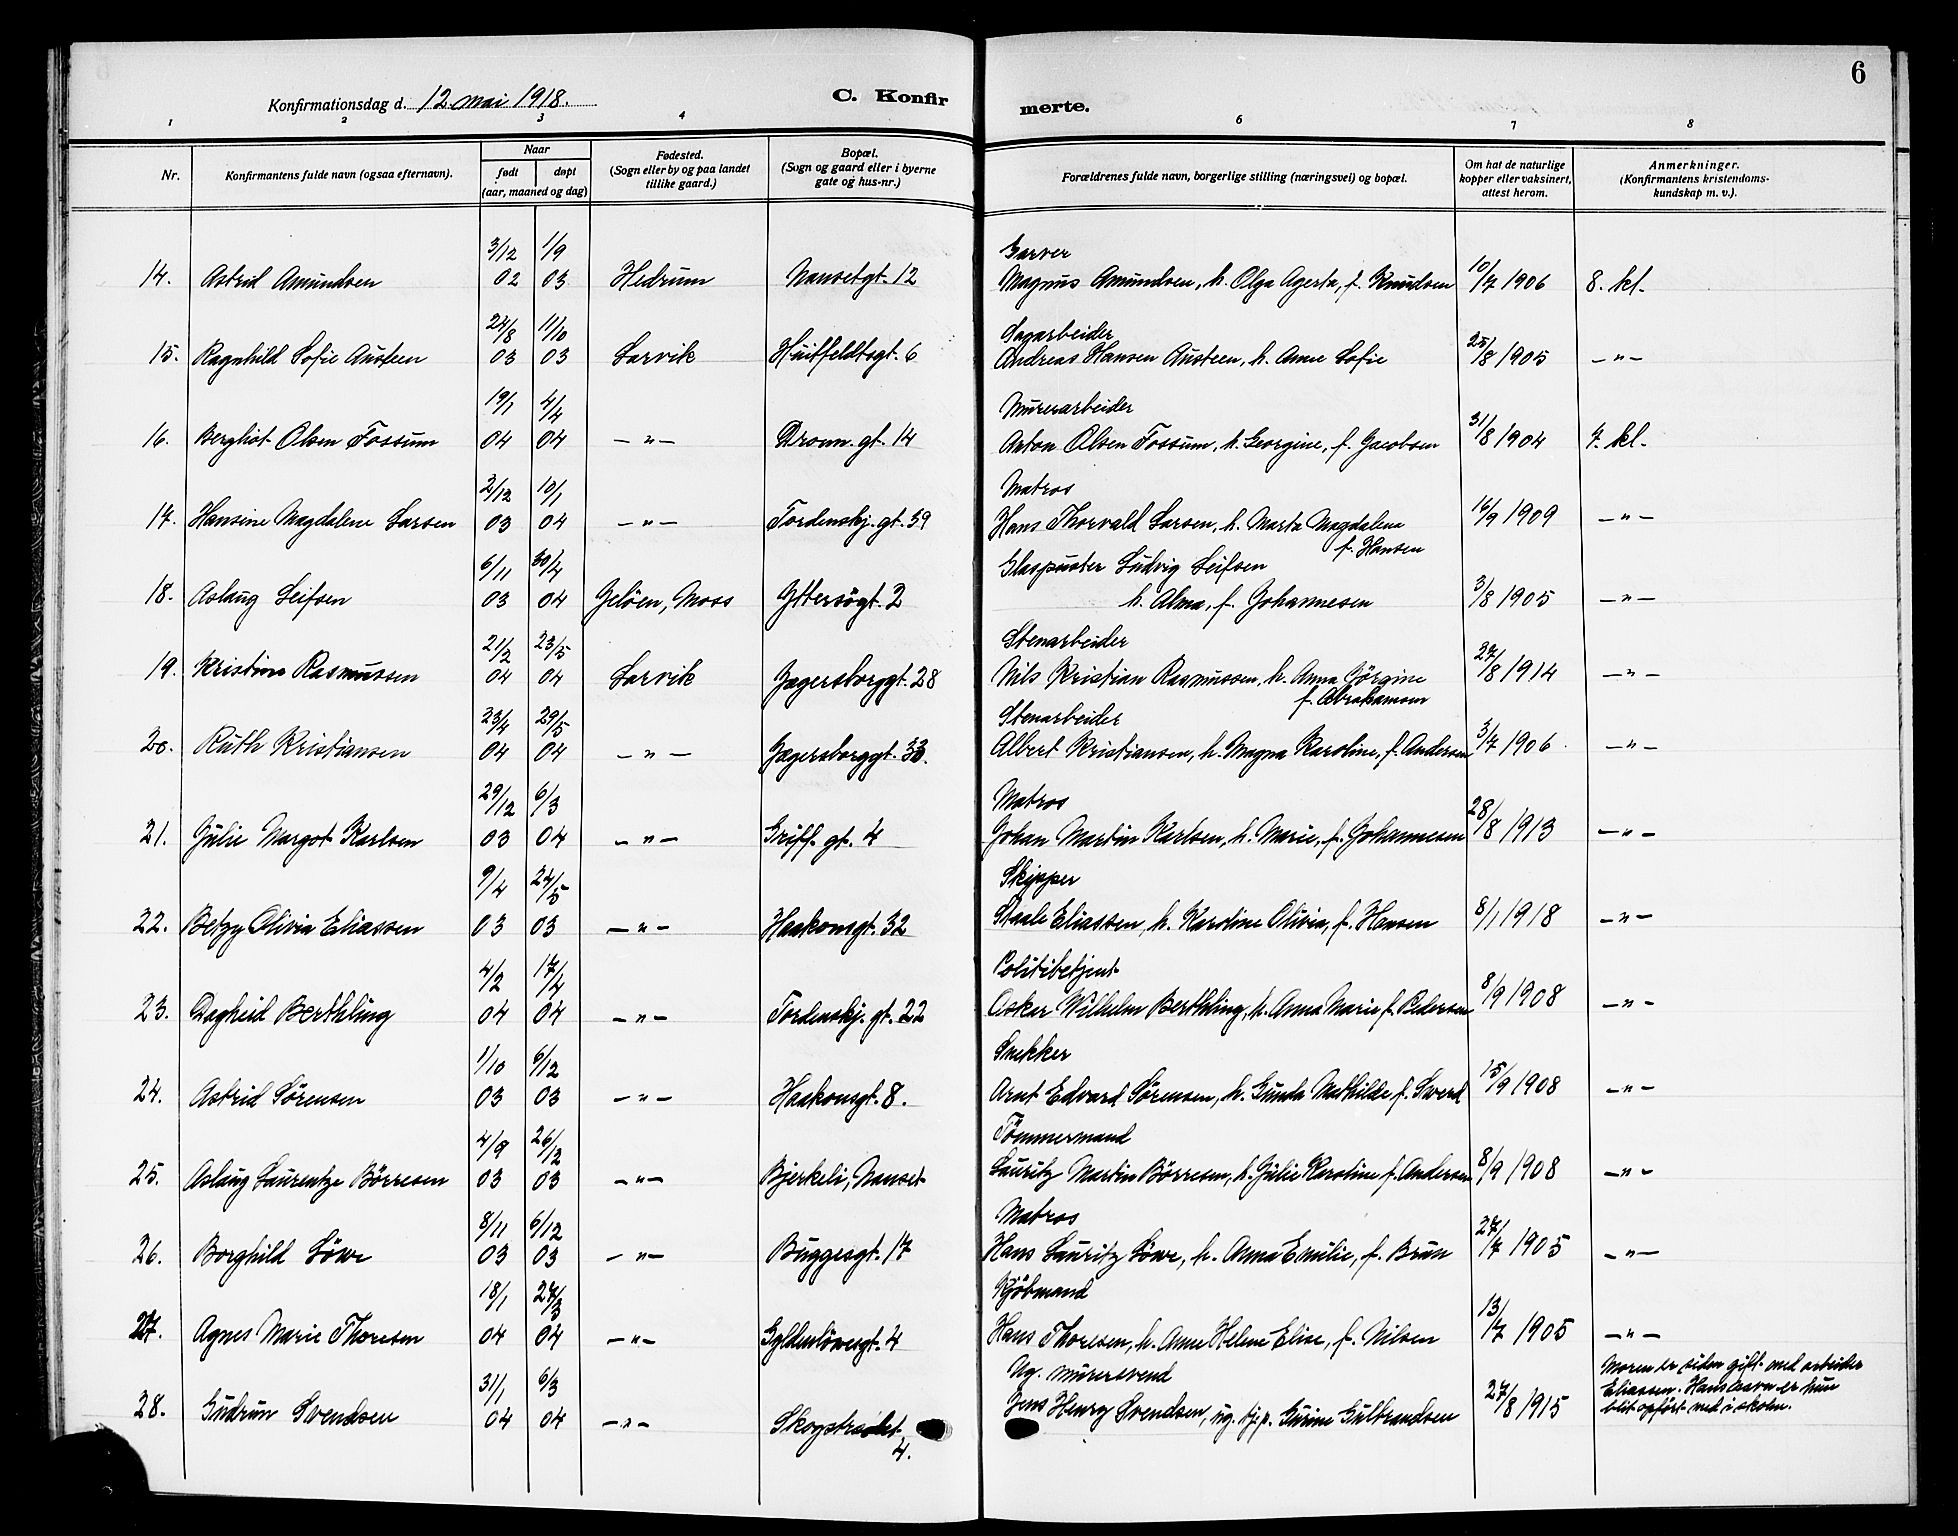 6
Konfirmationsdag d. 12 mai 1918.
C. Konfirmerte.
1 2 3 4 6 7 8
Nr.
Konfirmantens fulde navn (ogsaa efternavn).
Naar
født døpt
(aar, maaned og dag)
Fødested.
(Sogn eller by og paa landet
tillike gaard.)
Bopæl.
(Sogn og gaard eller i byerne
gate og hus-nr.)
Forældrenes fulde navn, borgerlige stilling (næringsvei) og bopæl.
Om hat de naturlige
kopper eller vaksinert,
attest herom.
Anmerkninger.
(Konfirmantens kristendoms-
kundskap m. v.).
3/12 1/9 Garver
14. Astrid Amundsen 02 03 Hedrum Nansetgt. 12 Magnus Amundsen, h. Olga Agerta, f. Knudsen 10/7 1906 8. kl.
24/8 11/10 Sagarbeider
15. Ragnhild Sofie Austeen 03 03 Larvik Huitfeldtsgt. 6 Andreas Hansen Austeen, h. Anne Sofie 25/8 1905 – " –
19/1 4/4 Murerarbeider
16. Bergliot Olsen Fossum 04 04 – " – Dronn. gt. 14 Anton Olsen Fossum, h. Georgine, f. Jacobsen 31/8 1904 7. kl.
2/12 10/1 Matros
17. Hansine Magdalene Larsen 03 04 – " – Tordenskj. gt. 39 Hans Thorvald Larsen, h. Marta Magdalena 16/9 1909 – " –
f. Hansen
6/11 30/4 Glaspuster Ludvig Leifsen
18. Aslaug Leifsen 03 04 Geløen, Moss Yttersøgt. 2 h. Alma, f. Johannesen 3/8 1905 – " –
21/2 23/5 Stenarbeider
19. Kristine Rasmussen 04 04 Larvik Jægersborggt. 28 Nils Kristian Rasmussen, h. Anna Jørgine 27/8 1914 – " –
f. Abrahamsen
23/4 29/5 Stenarbeider
20. Ruth Kristiansen 04 04 – " – Jægersborggt. 33. Albert Kristiansen, h. Magna Karoline, f. Andersen 3/7 1906. – " –
29/12 6/3 Matros
21. Julie Margot Karlsen 03 04 – " – Griff. gt. 4 Johan Martin Karlsen, h. Marie, f. Johannesen 28/8 1913 – " –
9/4 24/5 Skipper
22. Betzy Olivia Eliassen 03 03 – " – Haakonsgt. 32 Staale Eliassen, h. Karoline Olivia, f. Hansen 8/1 1918 – " –
4/2 17/4 Politibetjent
23. Dagheid Berthling 04 04 – " – Tordenskj. gt. 22 Oskar Wilhelm Berthling, h. Anna Marie f. Pedersen 8/9 1908 – " –
1/10 6/12 Snekker
24. Astrid Sørensen 03 03 – " – Haakonsgt. 8. Arnt Edvard Sørensen, h. Gunda Mathilde f. Sverd 15/9 1908 – " –
4/9 26/12 Tømmermand
25. Aslaug Laurentze Børresen 03 03 – " – Bjerkeli, Nanset Lauritz Martin Børresen, h. Julie Karoline f. Andersen 8/9 1908 – " –
8/11 6/12 Matros
26. Borghild Løwe 03 03 – " – Buggesgt. 17 Hans Lauritz Løwe, h. Anna Emilie, f. Brun 27/7 1905 – " –
18/1 27/3 Kjøbmand
27. Agnes Marie Thoresen 04 04 – " – Gyldenløvesgt. 4 Hans Thoresen, h. Anne Helene Elise, f. Nilsen 13/7 1905 – " –
31/1 6/3 Ug. murersvend
28. Gudrun Svendsen 04 04 – " – Skogstrædet 4. Jens Henry Svendsen, ug. tj.p. Gurine Gulbrandsen 27/8 1915 Moren er siden gift med arbeider
Eliassen. Hans navn er hun
blit opført med i skolen.